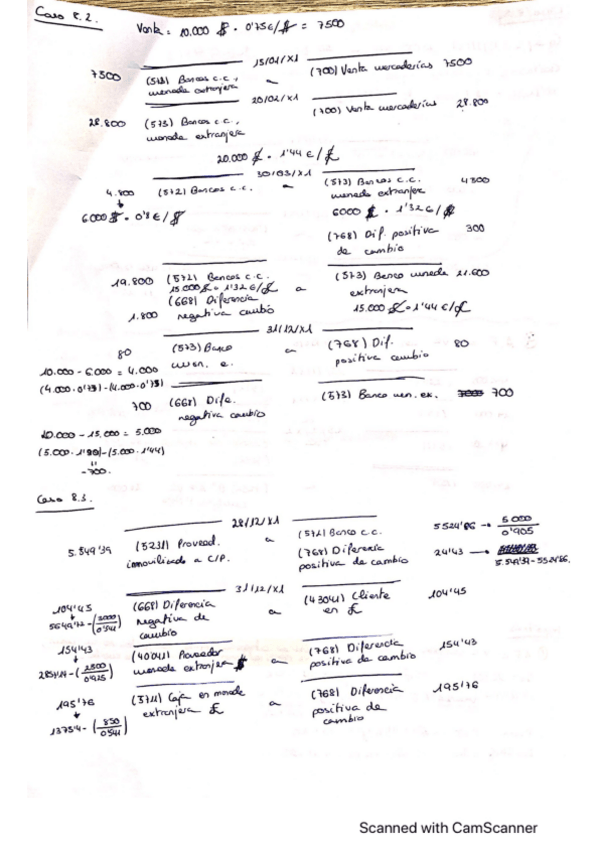 Caso 8.2.
Venta = 10.000 $ · 0'75€/$ = 7500
15/01/X1
7500 (573) Bancos c.c., moneda extranjera a (700) Venta mercaderías 7500
20/02/X1
28.800 (573) Bancos c.c., moneda extranjera (700) Venta mercaderías 28.800
20.000 £ · 1'44 €/£
30/03/X1
4.800 (572) Bancos c.c. a (573) Bancos c.c. moneda extranjer 4500
6000 $ · 0'8 €/$
(768) Dif. positiva de cambio 300
19.800 (572) Bancos c.c. a (573) Banco moneda extranjera 21.600
15.000 £ · 1'32 €/£
15.000 £ · 1'44 €/£
1.800 (668) Diferencia negativa cambio
31/12/X1
80 (573) Banco a (768) Dif. positiva cambio 80
10.000 - 6.000 = 4.000
700 (668) Dife. negativa cambio (573) Banco mon. ex. 700
20.000 - 15.000 = 5.000
(5.000 · 1'30)-(5.000 · 1'44)
-700.
Caso 8.3.
28/12/X1
5.549'29 (5231) Proveed. inmovilizado a C/P. a (572) Banco c.c. 5524'86 → 5000/0'905
(768) Diferencia positiva de cambio 24'43
31/12/X1
104'45 (668) Diferencia negativa de cambio a (4304) Cliente en £ 104'45
154'43 (4004) Proveedor moneda extranjera $ a (768) Diferencia positiva de cambio 154'43
195'76 (571) Caja en moneda extranjera £ a (768) Diferencia positiva de cambio 195'76
Scanned with CamScanner